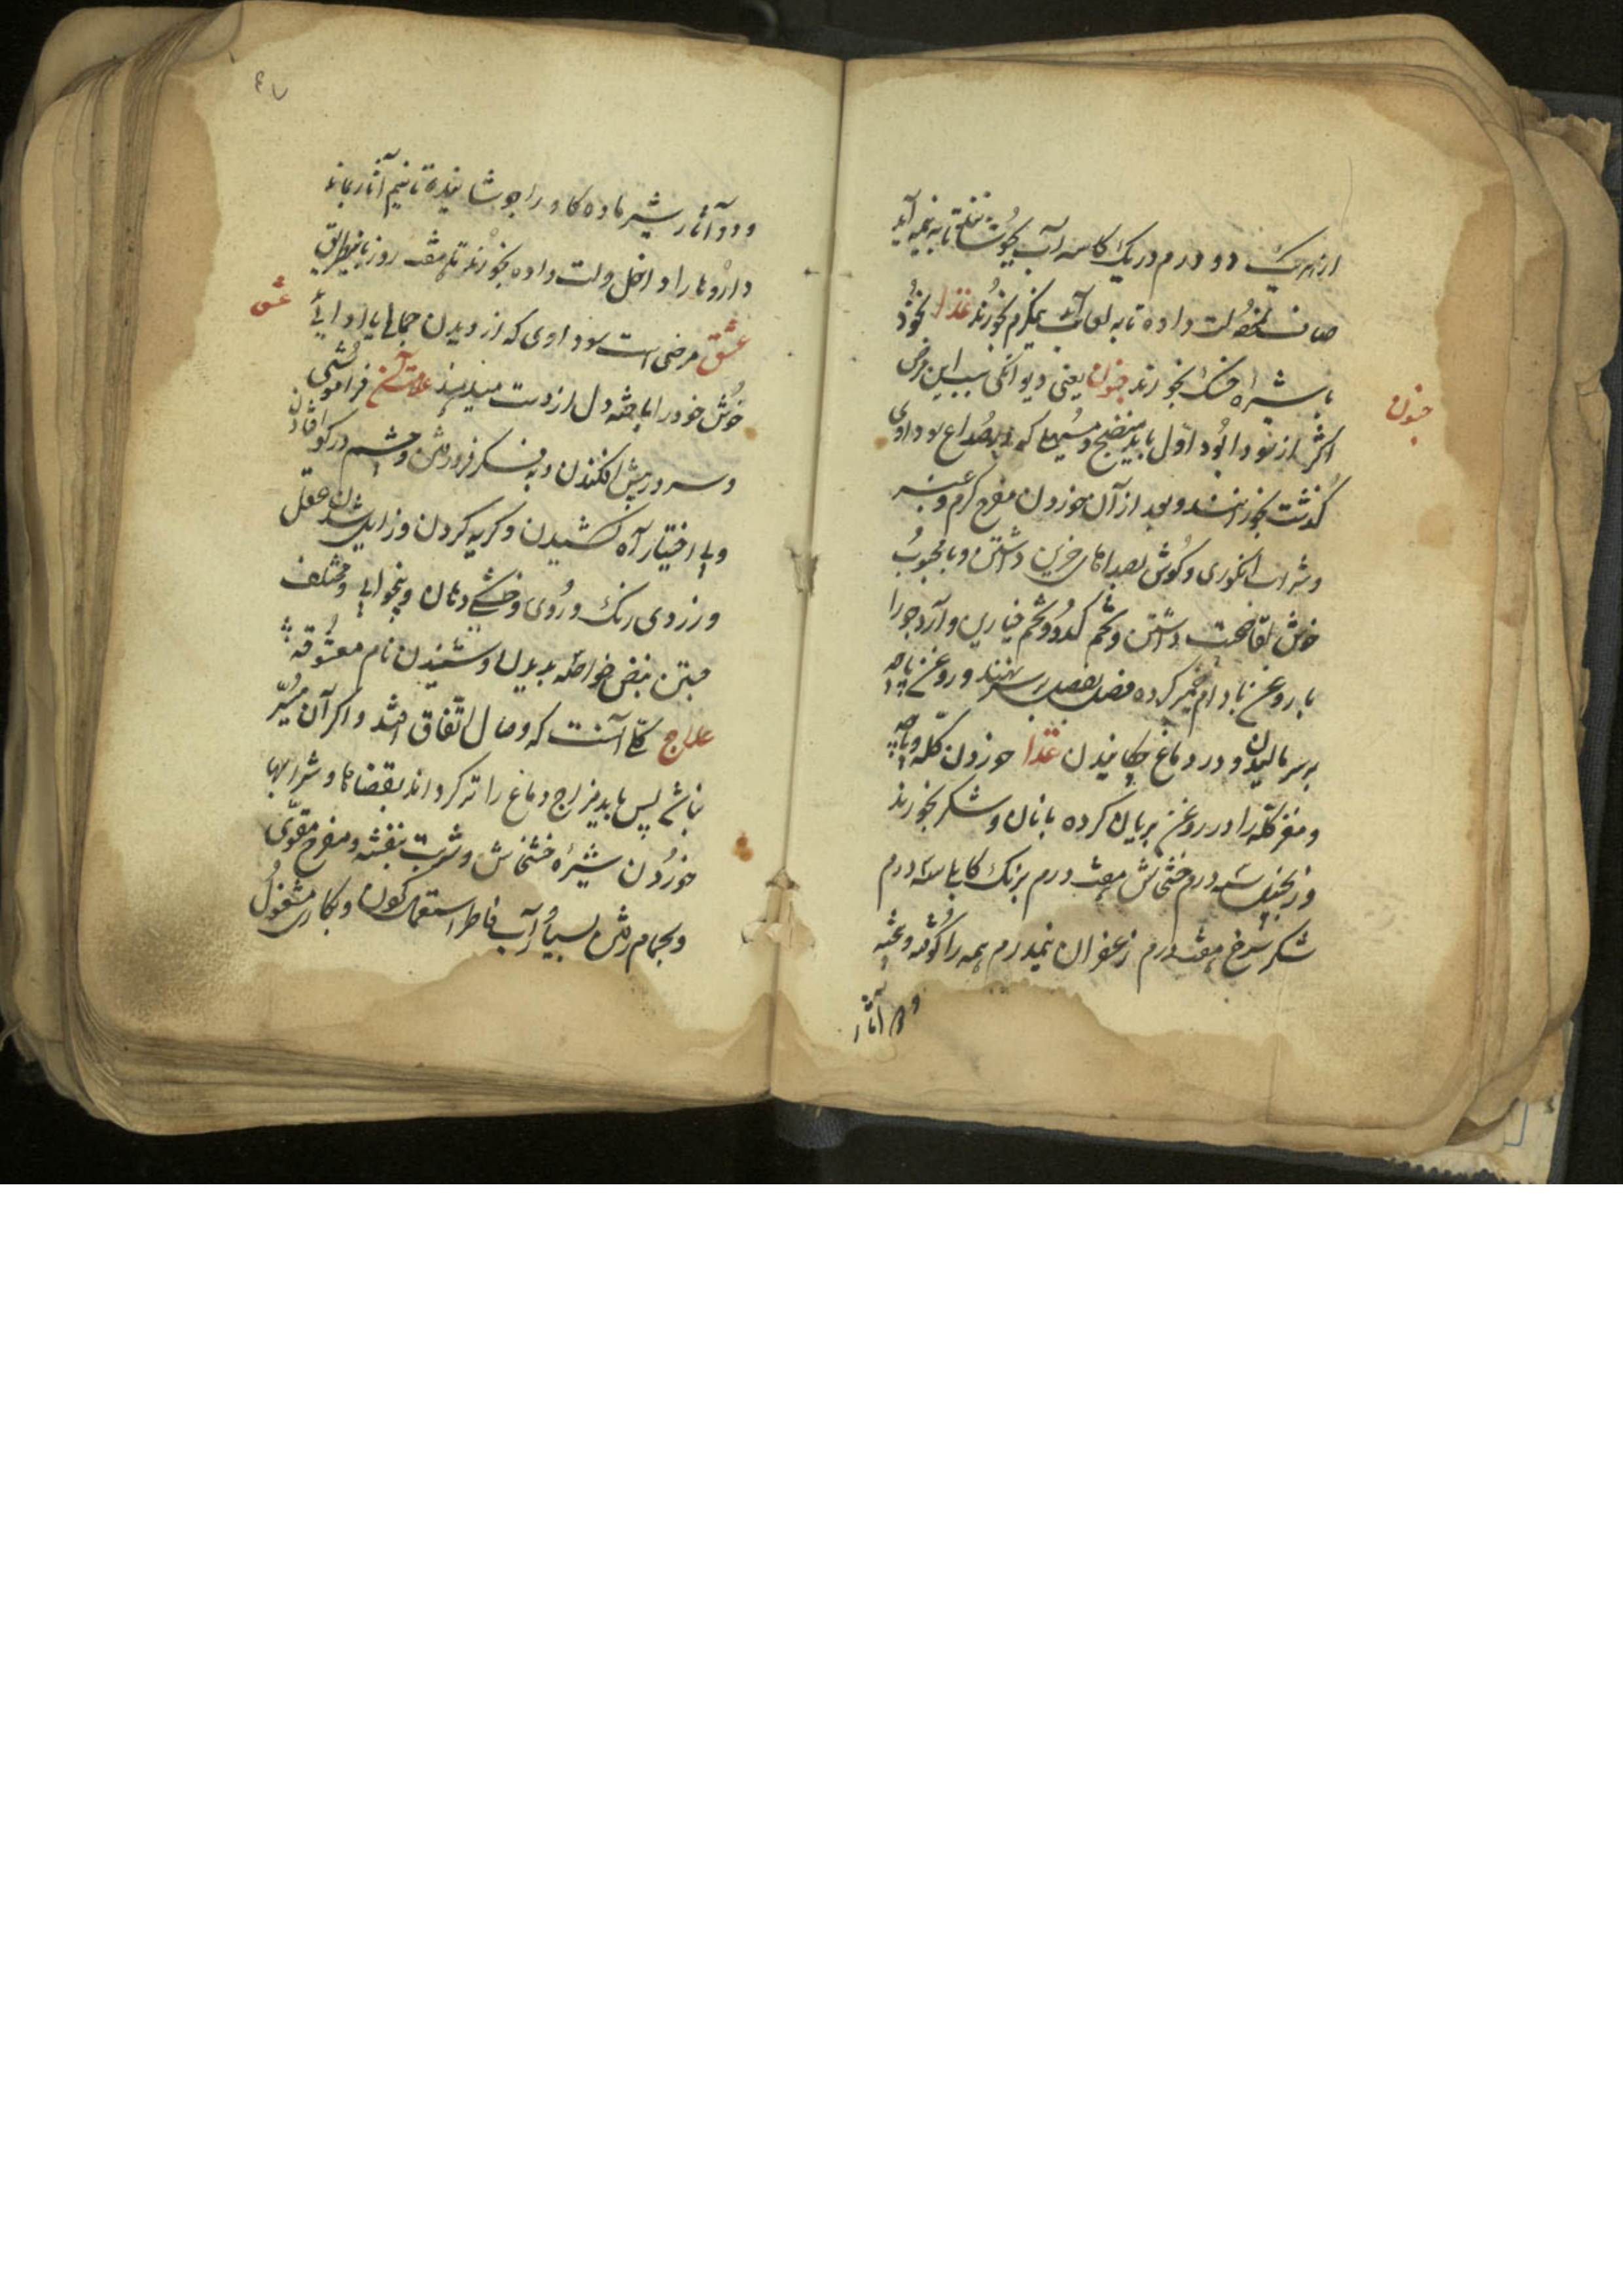 از هریک دو درم در یک کاسه آب بجوشانند تا به نیمه آید
صاف داده تا به آید نیمگرم بخورند غذا نخود
با شیره خسک بخورند جنون یعنی دیوانگی سبب این مرض
جنون
اکثر از سودا بود اول باید منضج و مسهلی که در صداع سوداوی
گذشت بخورانند و بعد از آن خوردن مفرح گرم و عنبر
و شراب انگوری و گوش بصداهای حزین داشتن و با محبوب
خوش لقا صحبت داشتن و تخم کدو و تخم خیارین و آرد جو را
با روغن بادام خمیر کرده بر سر نهند و روغن پاچه
بر سر مالیدن و در دماغ چکانیدن غذا خوردن کله و پاچه
و مغز کله را در روغن بریان کرده با نان و شکر بخورند
و زنجبیل سه درم خشخاش هفت درم برنک کابلی سه درم
شکر سرخ هفت درم زعفران نیمدرم همه را کوفته و بیخته
و دو آثار
۴۷
و دو آثار شیر ماده کاو را جوشانیده تا نیم آثار بماند
داروها را داخل ولت داده بخورند تا هفت روز باینطریق
عشق
عشق مرضی است سوداوی که از دیدن جمالی یا ادائے
خوش خود را باخته دل از دست میدهند علامت آن فراموشی
و سر در پیش افکندن و به فکر فرو رفتن و چشم در کو افتادن
و بی اختیار آه کشیدن و کریه کردن و زایل شدن عقل
و زردی رنک و روی و خشکی دهان و بیخوابی و مختلف
نبض خواصه بدیدن و شنیدن نام معشوقه
علاج کلی آنست که وصال اتفاق افتد و اکر آن میسر
نباشد پس باید مزاج دماغ را تر کردانند و شرابها
خوردن شیره خشخاش و شربت بنفشه و مفرح مقوی
و بحمام رفتن بسیار آب فاطر استعمال کردن و بکاری مشغول